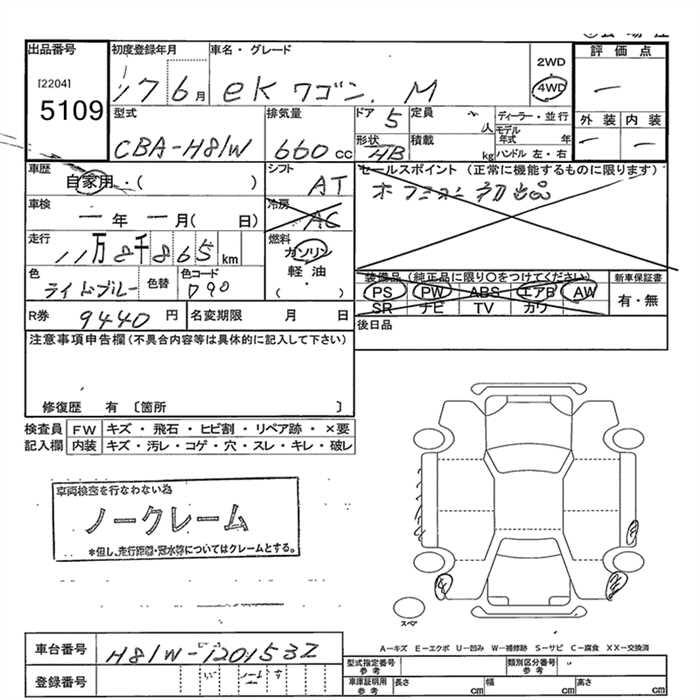 出品番号
[2204]
5109
初度登録年月
17 6月
車名・グレード
ek ワゴン. M
2WD
4WD
評価点
—
型式
CBA-H81W
排気量
660 cc
ドア 5
定員 人
形状 HB
積載 kg
ディーラー・並行
モデル年式 年
ハンドル 左・右
外装 内装
— —
車歴
自家用・( )
シフト
AT
セールスポイント (正常に機能するものに限ります)
初出品
車検
一年一月( 日)
冷房
AC
走行
11万8千865km
燃料
ガソリン
軽油
・( )
色
ライトブルー
色替
色コード
D90
装備品 (純正品に限り○をつけてください)
PS PW ABS エアB AW
SR ナビ TV カワ
新車保証書
有・無
R券
9440 円
名変期限 月 日
後日品
注意事項申告欄 (不具合内容等は具体的に記入して下さい)
修復歴 有 〔箇所 〕
検査員記入欄
FW キズ・飛石・ヒビ割・リペア跡・×要
内装 キズ・汚レ・コゲ・穴・スレ・キレ・破レ
車両検査を行なわない為
ノークレーム
*但し、走行距離・冠水等についてはクレームとする。
スペア
A-キズ E-エクボ U-凹み W-補修跡 S-サビ C-腐食 XX-交換済
車台番号
H81W-1201532
登録番号
型式指定番号 参考
類別区分番号 参考
車庫証明用 参考
長さ cm
幅 cm
高さ cm